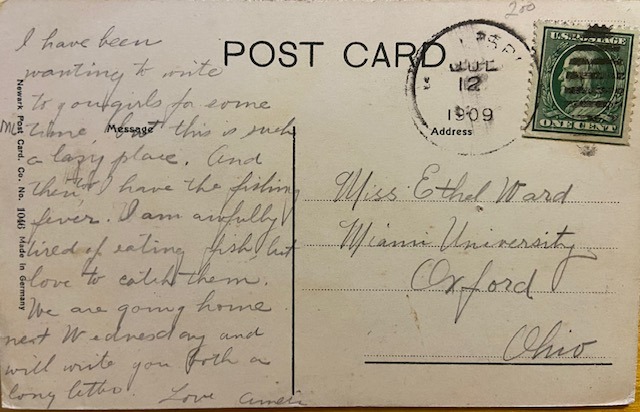 200
POST CARD
JUL
12
1909
U.S. POSTAGE
ONE CENT
Message
Address
Newark Post Card. Co. No. 1046 Made in Germany
I have been
wanting to write
to you girls for some
time but this is such
a lazy place. And
then too I have the fishing
fever. I am awfully
tired of eating fish, but
love to catch them.
We are going home
next Wednesday and
will write you both a
long letter. Love
Miss Ethel Ward
Miami University
Oxford
Ohio